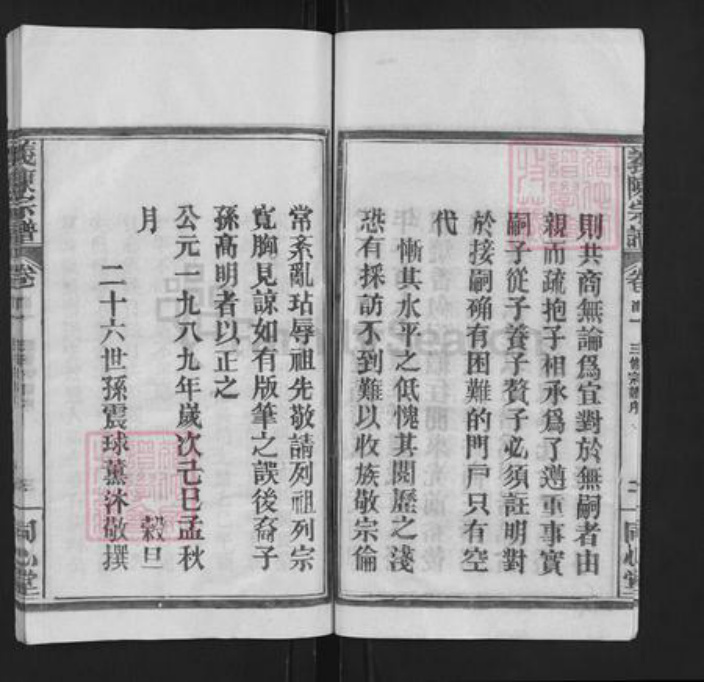 則共商無論爲宜對於無嗣者由
親而疏抱子相承爲了遵重事實
嗣子從子養子贅子必須註明對
於接嗣确有困難的門戶只有空
代
年慚其水平之低愧其閱歷之淺
恐有採訪不到難以收族敬宗倫
常紊亂玷辱祖先敬請列祖列宗
寬胸見諒如有版筆之誤後裔子
孫高明者以正之
公元一九八九年歲次己巳孟秋
月 穀旦
二十六世孫震球薰沐敬撰
義陳宗譜
卷首
三修宗譜序
同心堂
義陳宗譜
卷首
同心堂
FamilySearch